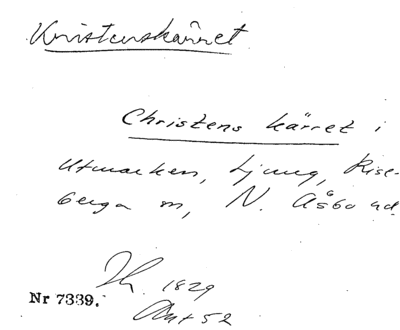 Kristenskärret
Christens kärret i
Utmarken, Ljung, Rise-
berga sn, N. Åsbo hd.
1829
Nr 7339.
Akt 52